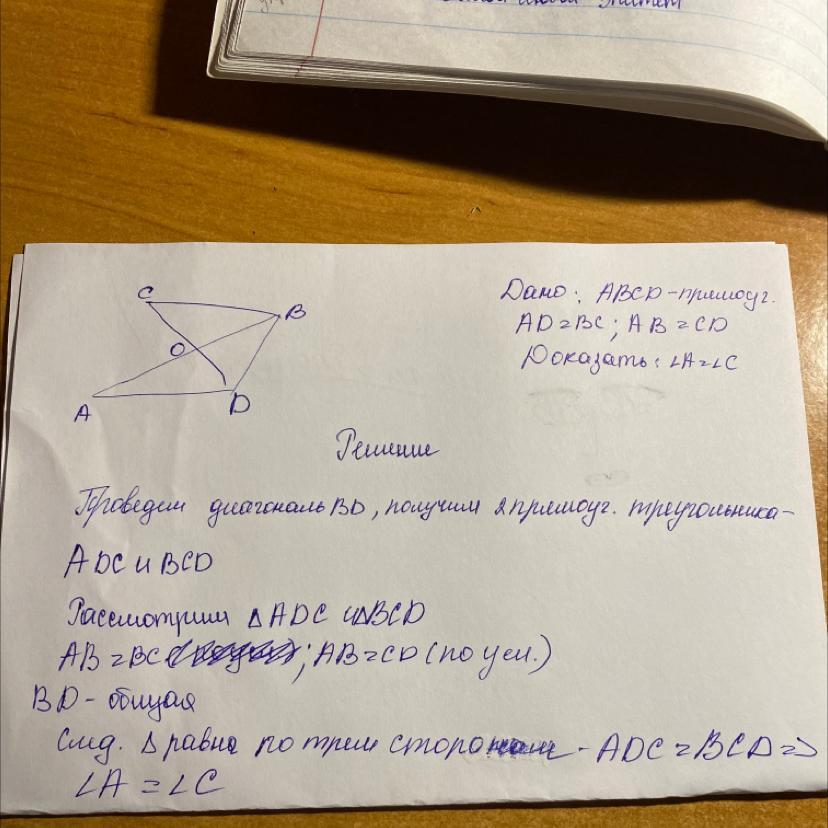 C
B
O
A
D
Дано: ABCD-прямоуг.
AD=BC; AB=CD
Доказать: ∠A=∠C
Решение
Проведем диагональ BD, получим 2 прямоуг. треугольника-
ADC и BCD
Рассмотрим △ADC и △BCD
AB=BC ; AB=CD (по усл.)
BD- общая
След. △ равны по трем сторонам - ADC=BCD=>
∠A=∠C